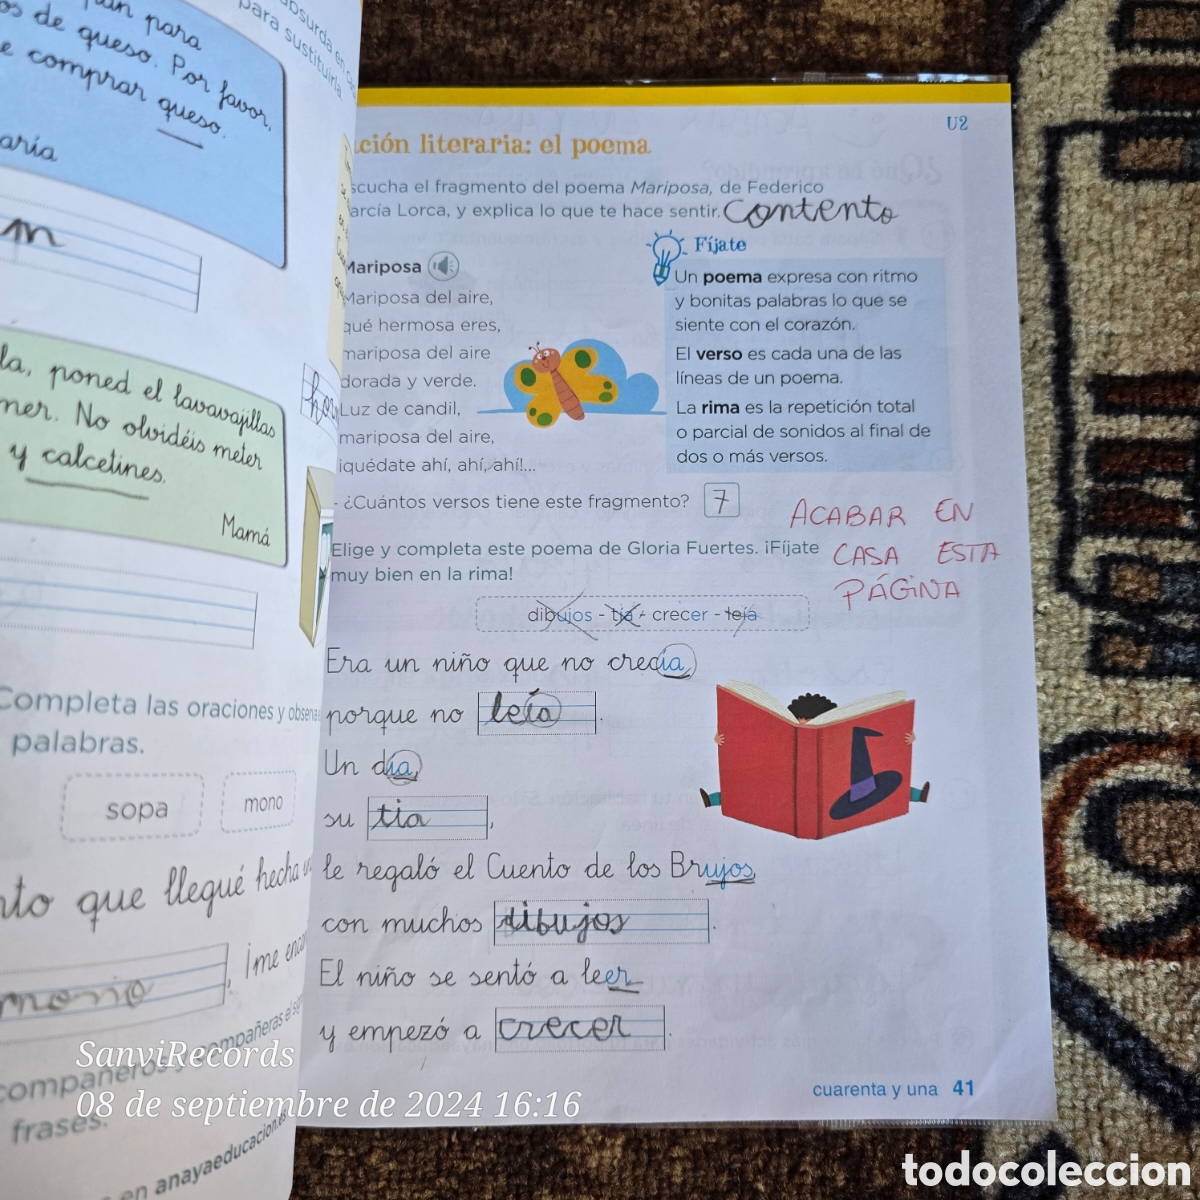 para
de queso. Por favor,
e comprar queso.
aría
m
absurda en
para sustituirla.
la, poned el lavavajillas
ner. No olvidéis meter
y calcetines.
Mamá
Completa las oraciones y obser
palabras.
sopa
mono
nto que llegué hecha
mono, ¡me encan
compañeros y compañeras el
frases.
en anayaeducacion.es
U2
ción literaria: el poema
scucha el fragmento del poema Mariposa, de Federico
arcía Lorca, y explica lo que te hace sentir. Contento
Mariposa
Mariposa del aire,
qué hermosa eres,
mariposa del aire
dorada y verde.
Luz de candil,
mariposa del aire,
¡quédate ahí, ahí, ahí!...
Fíjate
Un poema expresa con ritmo
y bonitas palabras lo que se
siente con el corazón.
El verso es cada una de las
líneas de un poema.
La rima es la repetición total
o parcial de sonidos al final de
dos o más versos.
- ¿Cuántos versos tiene este fragmento? 7
ACABAR EN
CASA ESTA
PÁGINA
Elige y completa este poema de Gloria Fuertes. ¡Fíjate
muy bien en la rima!
dibujos - tía - crecer - leía
Era un niño que no creía,
porque no leía.
Un día,
su tia,
le regaló el Cuento de los Brujos,
con muchos dibujos.
El niño se sentó a leer
y empezó a crecer.
cuarenta y una 41
SanviRecords
08 de septiembre de 2024 16:16
todocoleccion